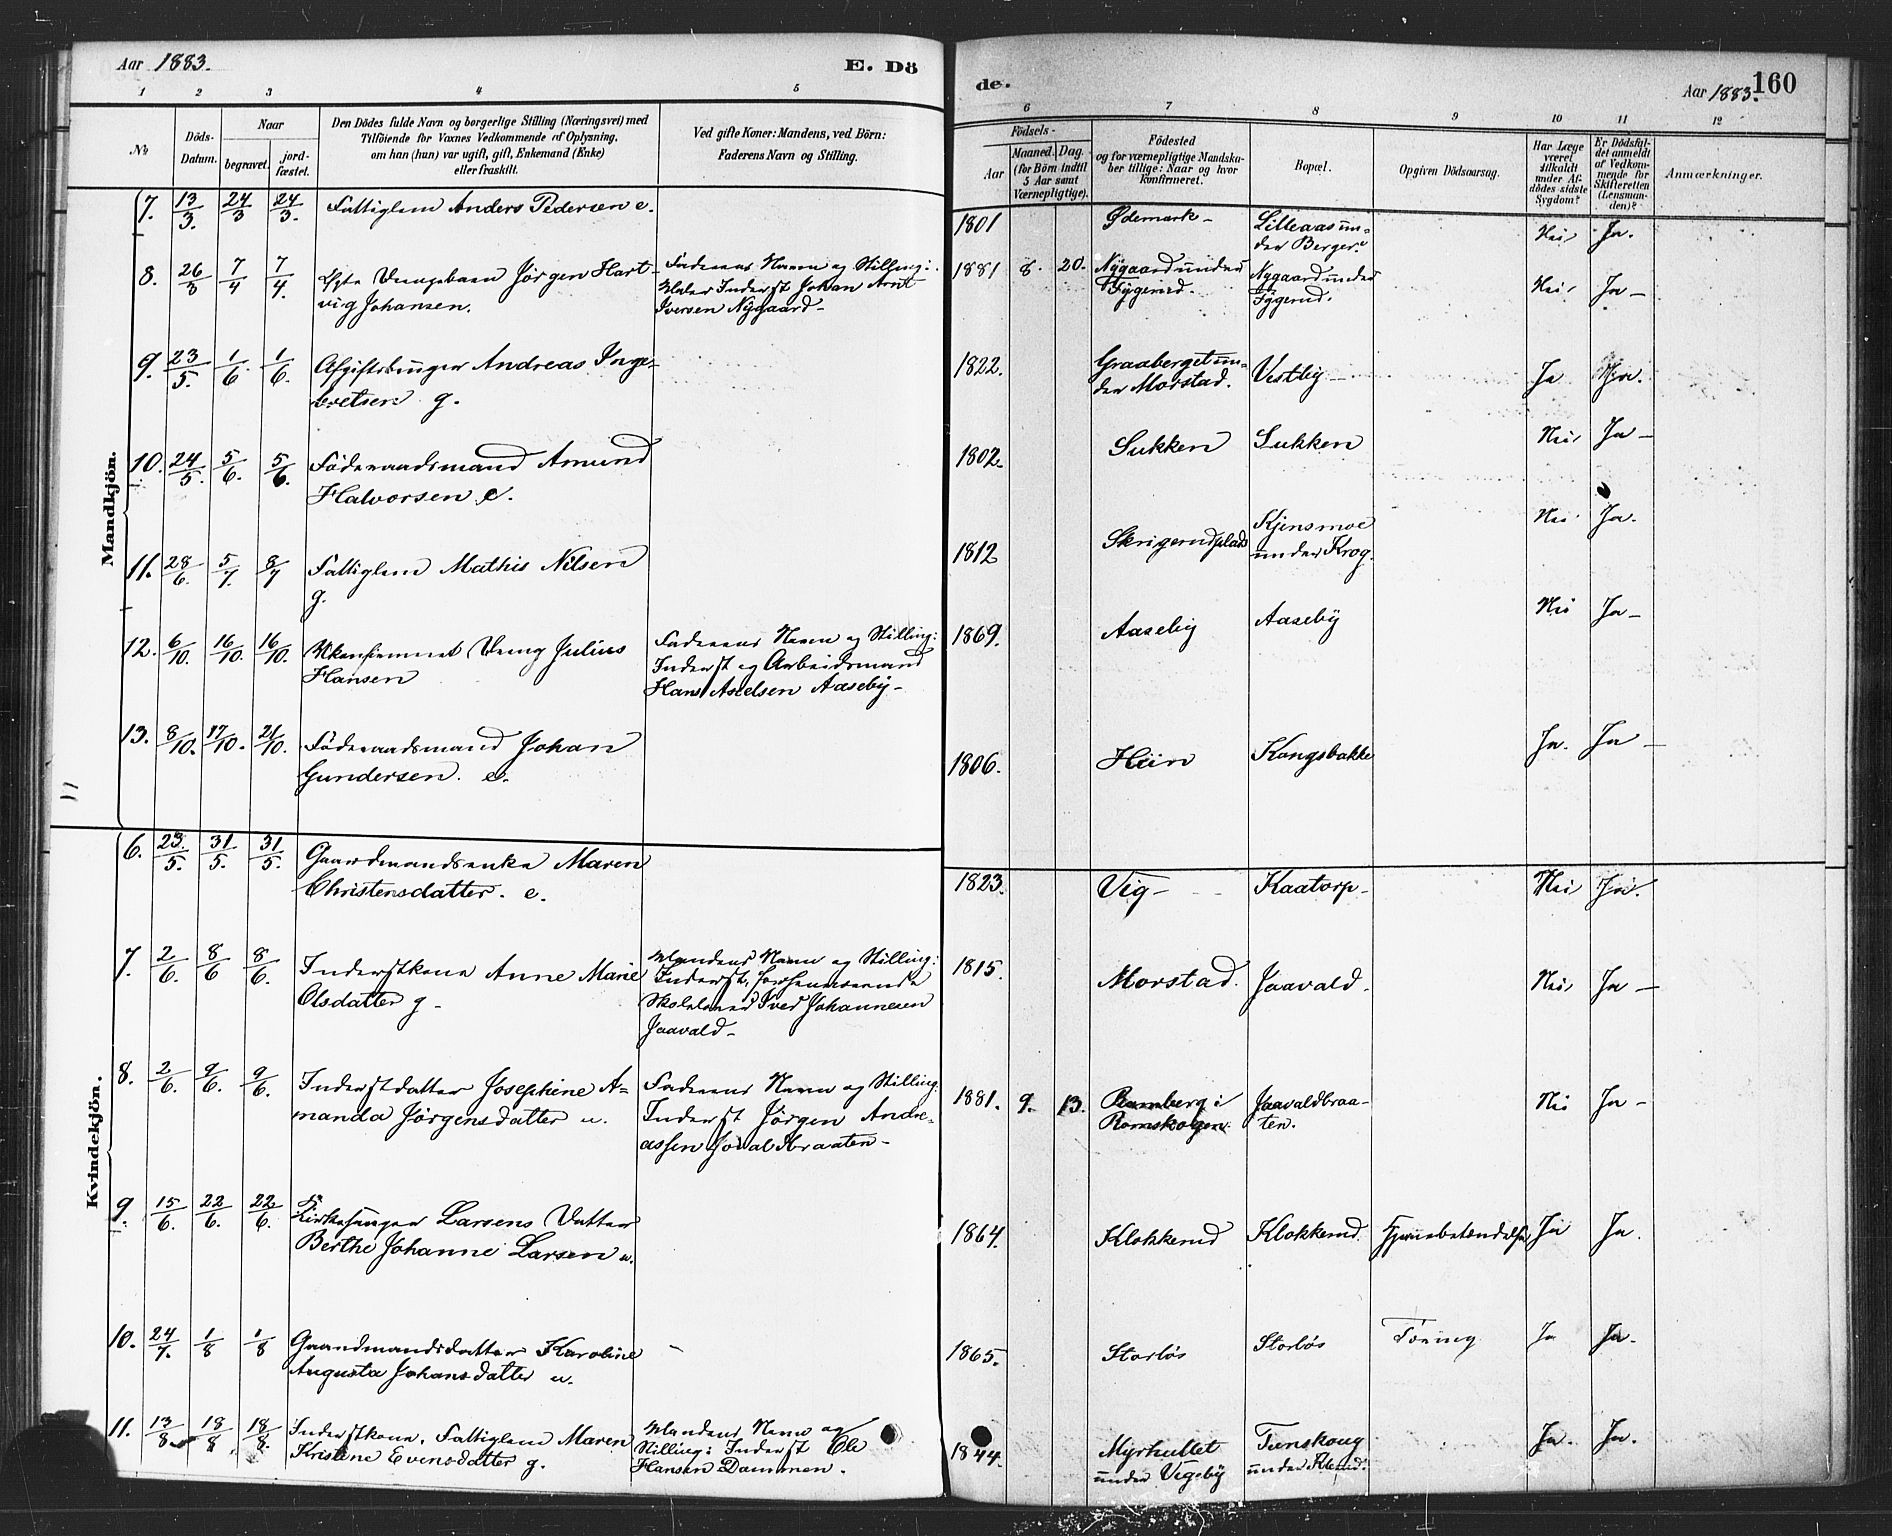 Aar 1883.
E. Dö
1 2 3 4 5
№
Döds-
Datum.
Naar
begravet.
jord-
fæstet.
Den Dödes fulde Navn og borgerlige Stilling (Næringsvei) med
Tilföiende for Voxnes Vedkommende af Oplysning,
om han (hun) var ugift, gift, Enkemand (Enke)
eller fraskilt.
Ved gifte Koner: Mandens, ved Börn:
Faderens Navn og Stilling.
Mandkjön.
7. 13/3. 24/3 24/3. Fattiglem Anders Pedersen e.
8. 26/3 7/4 7/4. Ægte Drengebarn Jörgen Hart-
vig Johansen.
Faderens Navn og Stilling:
Inderst Johan Arnt
Iversen Nygaard-
9. 23/5. 1/6 1/6. Afgiftsbruger Andreas Inge-
bretsen g.
10. 24/5. 5/6. 5/6. Föderaadsmand Amund
Halvorsen e.
11. 28/6. 5/7. 8/7 Fattiglem Mathis Nilsen
g.
12. 6/10. 16/10. 16/10. Ukonfirmeret Dreng Julius
Hansen
Faderens Navn og Stilling:
Inderst og Arbeidsmand
Hans Axelsen Aaseby-
13. 8/10. 17/10. 21/10. Föderaadsmand Johan
Gundersen. e.
Kvindekjön.
6. 23/5. 31/5. 31/5. Gaardmandsenke Maren
Christensdatter. e.
7. 2/6. 8/6 8/6. Inderstkone Anne Marie
Olsdatter g-
Mandens Navn og Stilling:
Inderst, forhenværende
Skolelærer Iver Johannesen
Jaavald-
8. 2/6. 9/6. 9/6. Inderstdatter Josephine A=
manda Jörgensdatter u.
Faderens Navn og Stilling:
Inderst Jörgen Andre-
assen Jovaldbraaten-
9. 15/6. 22/6. 22/6. Kirkesanger Larsens Datter
Berthe Johanne Larsen u.
10. 24/7. 1/8 1/8 Gaardmandsdatter Karoline
Augusta Johansdatter u.
11. 13/8 18/8. 18/8. Inderstkone, Fattiglem Maren
Kristine Evensdatter g.
Mandens Navn og
Stilling: Inderst Ole
Hansen Dammen.
de.
Aar 1883. 160
6 7 8 9 10 11 12
Aar
Födsels-
Maaned. Dag.
(for Börn indtil
5 Aar samt
Værnepligtige).
Födested
og for værnepligtige Mandska-
ber tillige: Naar og hvor
konfirmeret.
Bopæl.
Opgiven Dödsaarsag.
Har Læge
været
tilkaldt
under Af-
dödes sidste
Sygdom?
Er Dödsfal-
det anmeldt
af Vedkom-
mende for
Skifteretten
(Lensman-
den)?
Anmærkninger.
1801 Ødemark- Lilleaas un=
der Berger. Nei, Ja.
1881 8. 20. Nygaard under
Tygerud. Nygaard under
Tygerud. Nei, Ja-
1822. Graaberget un=
der Morstad. Vestby- Ja
1802. Sukken Sukken Nei, Ja-
1812 Skrigerudplads Kjensmoe
under Krog. Nei Ja.
1869. Aaseby Aaseby Nei Ja-
1806. Hein Kongsbakke Ja. Ja-
1823. Vig- Kaatorp- Nei Ja.
1815. Morstad. Jaavald. Nei, Ja-
1881. 9. 13. Ramberg i
Romskogen. Jaavaldbraa-
ten. Nei Ja-
1864. Klokkerud Klokkerud. Hjernebetændelse Ja Ja.
1865. Storlös Storlös Tæring Ja Ja.
1844. Myrhullet
under Vigeby Tunskoug
under Klerud. Ja. Ja.